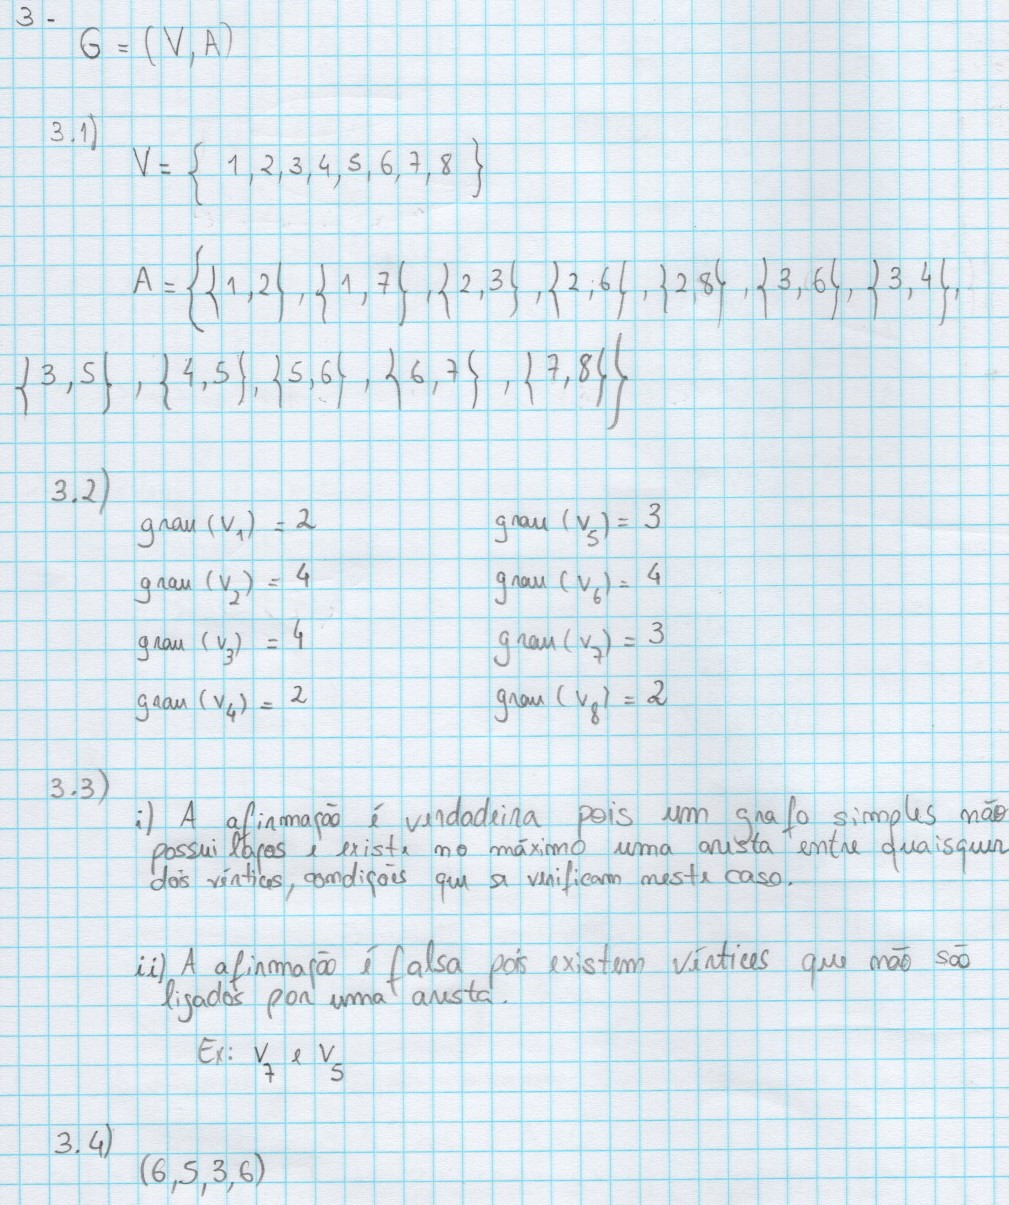 3 -
G = (V, A)
3.1)
V = { 1, 2, 3, 4, 5, 6, 7, 8 }
A = {{1, 2}, {1, 7}, {2, 3}, {2, 6}, {2, 8}, {3, 6}, {3, 4},
{3, 5}, {4, 5}, {5, 6}, {6, 7}, {7, 8}}
3.2)
grau (V₁) = 2 grau (V₅) = 3
grau (V₂) = 4 grau (V₆) = 4
grau (V₃) = 4 grau (V₇) = 3
grau (V₄) = 2 grau (V₈) = 2
3.3)
i) A afirmação é verdadeira pois um grafo simples não
possui laços e existe no máximo uma aresta entre quaisquer
dois vértices, condições que se verificam neste caso.
ii) A afirmação é falsa pois existem vértices que não são
ligados por uma aresta.
Ex: V₇ e V₅
3.4)
(6, 5, 3, 6)